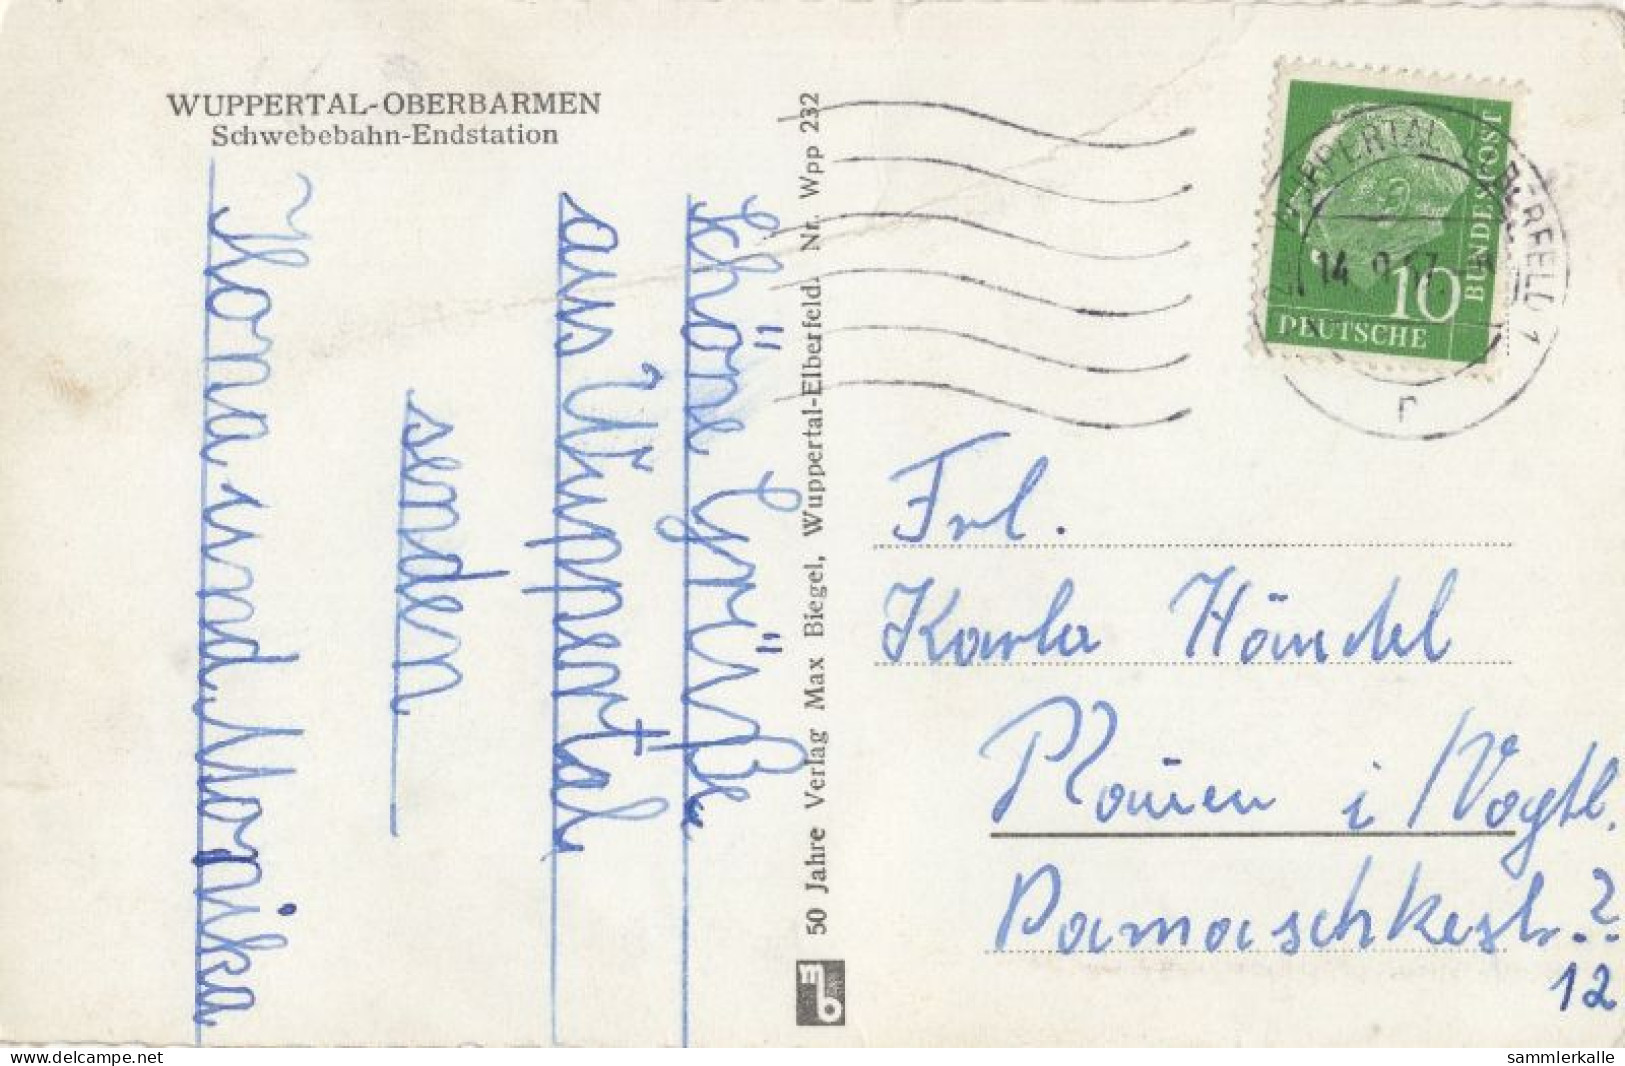 WUPPERTAL-OBERBARMEN
Schwebebahn-Endstation
Schöne Grüße
aus Wuppertal
senden
Ilona und Monika
50 Jahre Verlag Max Biegel, Wuppertal-Elberfeld. Nr. Wpp 232
mb
DEUTSCHE
BUNDESPOST
10
WUPPERTAL-ELBERFELD 1
14. 9.57
r
Frl.
Karla Händel
Plauen i/Vogtl.
Damaschkestr. ?
12
www.delcampe.net
sammlerkalle